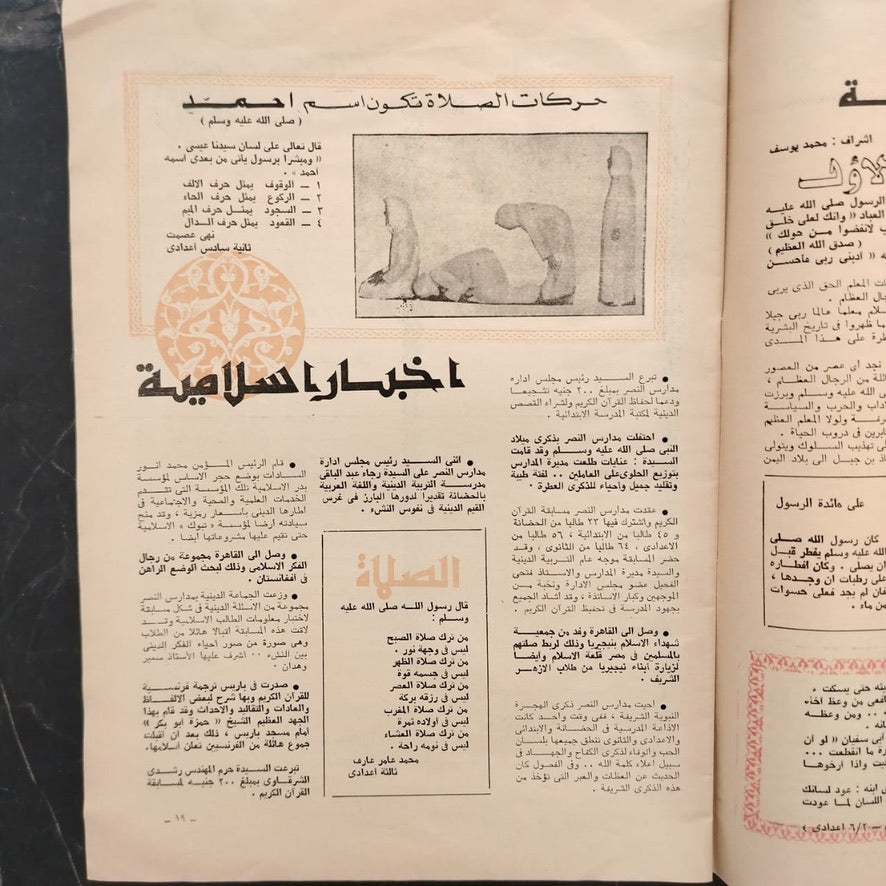 حركات الصلاة تكون اسم احمد
( صلى الله عليه وسلم )
قال تعالى على لسان سيدنا عيسى .
(( ومبشرا برسول يأتى من بعدى اسمه
احمد )) .
١ ــ الوقوف يمثل حرف الالف
٢ ــ الركوع يمثل حرف الحاء
٣ ــ السجود يمثل حرف الميم
٤ ــ القعود يمثل حرف الدال
نهى عصمت
ثانية سادس اعدادى
اخبار اسلامية
● تبرع السيد رئيس مجلس اداره
مدارس النصر بمبلغ ٢٠٠ جنيه تشجيعا
ودعما لحفاظ القرآن الكريم ولشراء القصص
الدينية لمكتبة المدرسة الابتدائية .
● احتفلت مدارس النصر بذكرى ميلاد
النبى صلى الله عليه وسلم وقد قامت
السيدة : عنايات طلعت مديرة المدارس
بتوزيع الحلوى على العاملين .. لفتة طيبة
وتقليد جميل واحياء للذكرى العطرة .
● عقدت مدارس النصر مسابقة القرآن
الكريم واشترك فيها ٢٣ طالبا من الحضانة
و ٤٥ طالبا من الابتدائية ، ٥٦ طالبا من
الاعدادى ، ٦٤ طالبا من الثانوى ، وقد
حضر المسابقة موجه عام التربية الدينية
والسيدة مديرة المدارس والاستاذ فتحى
الفحيل عضو مجلس الادارة ونخبة من
الموجهين وكبار الاساتذة ، وقد أشاد الجميع
بجهود المدرسة فى تحفيظ القرآن الكريم .
● وصل الى القاهرة وفد من جمعية
شهداء الاسلام بنيجيريا وذلك لربط صلتهم
بالمسلمين فى مصر قلعة الاسلام وايضا
لزيارة أبناء نيجيريا من طلاب الازهر
الشريف .
● احيت مدارس النصر ذكرى الهجرة
النبوية الشريفة ، ففى وقت واحد كانت
الاذاعة المدرسية فى الحضانة والابتدائى
والاعدادى والثانوى تنطق جميعها بلسان
الحب والوفاء لذكرى الكفاح والجهاد فى
سبيل اعلاء كلمة الله .. وفى الفصول كان
الحديث عن العظات والعبر التى تؤخذ من
هذه الذكرى الشريفة .
● اثنى السيد رئيس مجلس ادارة
مدارس النصر على السيدة رجاء عبد الباقى
مدرسة التربية الدينية واللغة العربية
بالحضانة تقديرا لدورها البارز فى غرس
القيم الدينية فى نفوس النشء .
الصلاة
قال رسول الله صلى الله عليه
وسلم :
من ترك صلاة الصبح
ليس فى وجهة نور .
من ترك صلاة الظهر
ليس فى جسمه قوة
من ترك صلاة العصر
ليس فى رزقه بركة
من ترك صلاة المغرب
ليس فى اولاده ثمرة
من ترك صلاة العشاء
ليس فى نومه راحة .
محمد عامر عارف
ثالثة اعدادى
● قام الرئيس المؤمن محمد انور
السادات بوضع حجر الاساس لمؤسسة
بدر الاسلامية تلك المؤسسة التى تقدم
الخدمات العلمية والصحية والاجتماعية فى
اطارها الدينى بأسعار رمزية ، وقد منح
سيادته ارضا لمؤسسة « تبوك » الاسلامية
حتى تقيم عليها مشروعاتها ايضا .
● وصل الى القاهرة مجموعة من رجال
الفكر الاسلامى وذلك لبحث الوضع الراهن
فى افغانستان .
● وزعت الجماعة الدينية بمدارس النصر
مجموعة من الاسئلة الدينية فى شكل مسابقة
لاختبار معلومات الطالب الاسلامية وقد
لاقت هذه المسابقة اقبالا هائلا من الطلاب
وهى صورة من صور احياء الفكر الدينى
بين النشء .. أشرف عليها الأستاذ سمير
وهدان .
● صدرت فى باريس ترجمة فرنسية
للقرآن الكريم وبها شرح لبعض الالفاظ
والعادات والتقاليد والاحداث وقد قام بهذا
الجهد العظيم الشيخ « حمزة أبو بكر »
أمام مسجد باريس ، ذلك بعد ان اقبلت
جموع هائلة من الفرنسيين تعلن اسلامها.
تبرعت السيدة حرم المهندس رشدى
الشرقاوى بمبلغ ٢٠٠ جنيه لمسابقة
القرآن الكريم .
ــ ١٩ ــ
اشراف : محمد يوسف
الرسول صلى الله عليه
العباد « وانك لعلى خلق
لانفضوا من حولك »
( صدق الله العظيم )
« ادبنى ربى فأحسن
المعلم الحق الذى يربى
العظام .
معلما عالما ربى جيلا
ظهروا فى تاريخ البشرية
على هذا المدى
نجد أى عصر من العصور
من الرجال العظام ،
الله عليه وسلم وبرزت
والحرب والسياسة
ولولا المعلم العظيم
فى دروب الحياة .
تهذيب السلوك ويتولى
بن جبل الى بلاد اليمن
على مائدة الرسول
كان رسول الله صلى
الله عليه وسلم يفطر قبل
أن يصلى . وكان افطاره
على رطبات ان وجدها ،
فان لم يجد فعلى حسوات
من ماء .
حتى يسكت .
من وعظ أخاه
.. ومن وعظه
أبى سفيان « لو ان
ما انقطعت ...
واذا ارخوها
ابنه : عود لسانك
اللسان لما عودت
ــ ٦/٢ اعدادى )